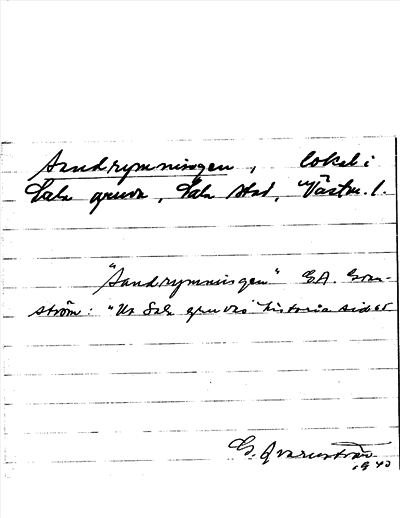 Sandrymningen, lokal i
Sala gruva, Sala stad, Västm. l.
"Sandrymningen" GA. Gran-
ström: "Ur Sala gruvas historia sid 65
G. Qvarnström
1940